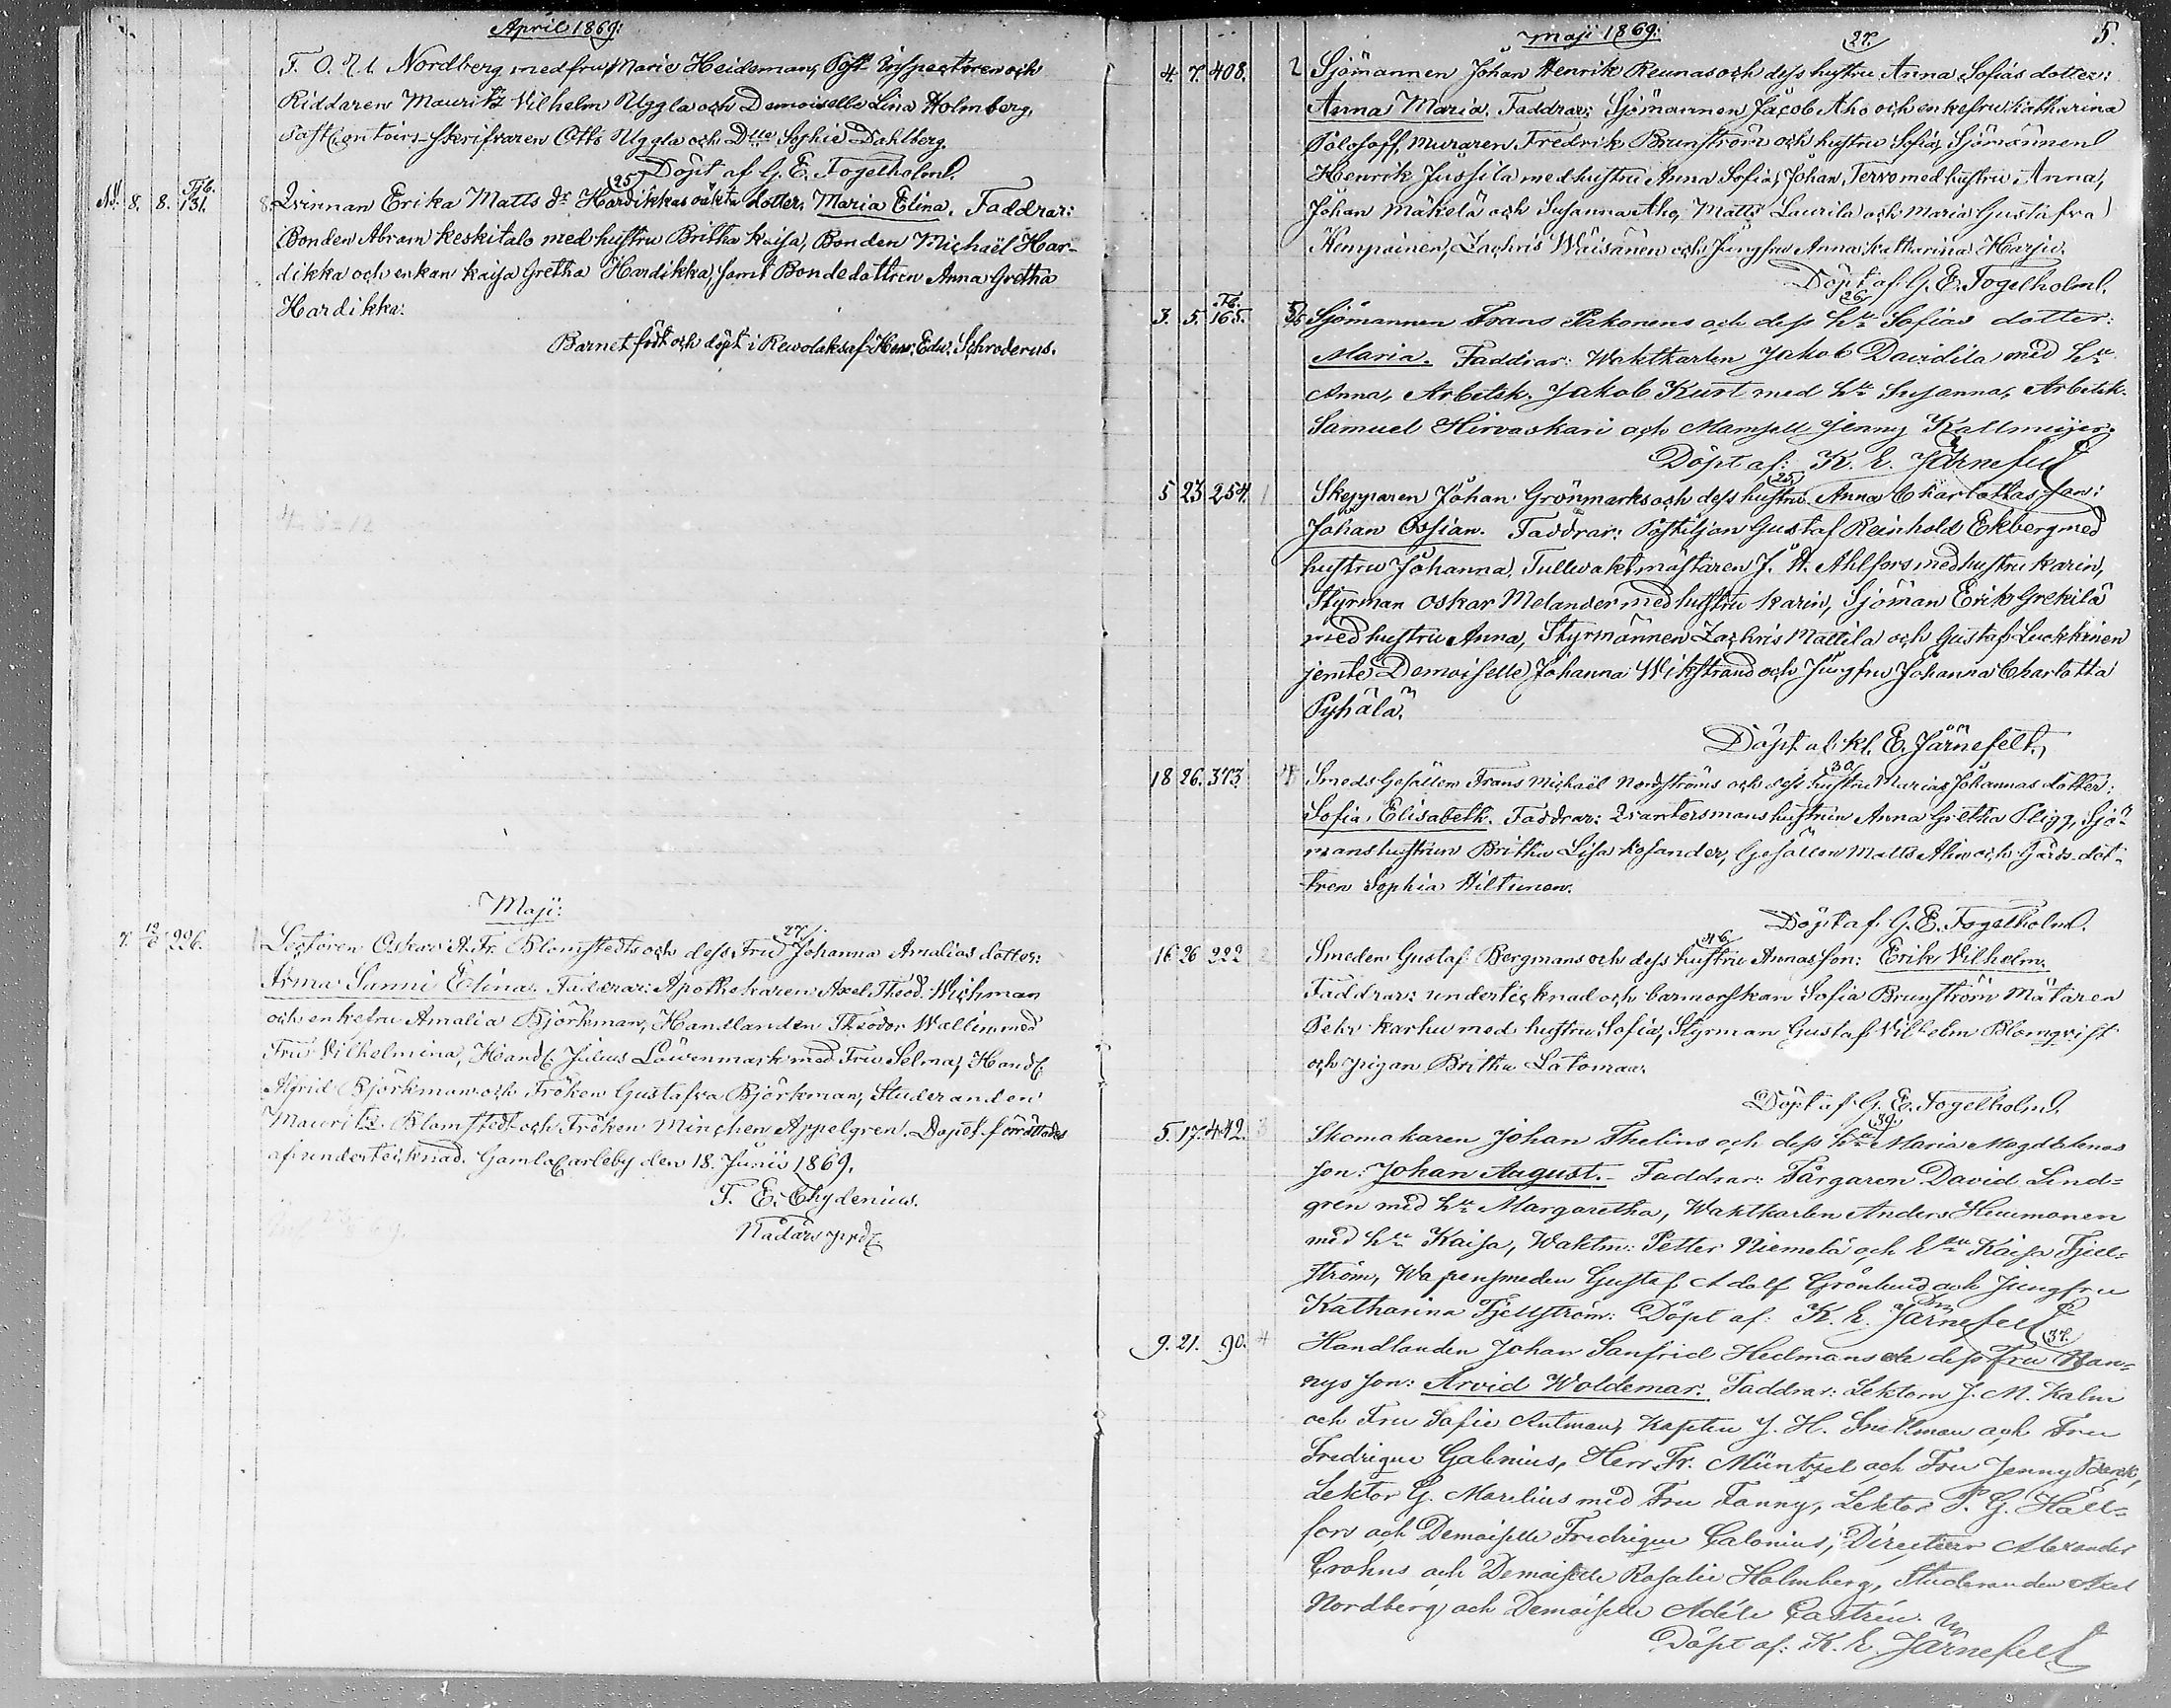 April 1869:
F. O. U. Nordberg med fru Marie Heideman, Post Inspectoren och
Riddaren Mauritz Vilhelm Uggla och Demoiselle Lina Holmberg,
Postcontoirs-skrifvaren Otto Uggla och Dlle Sophie Dahlberg.
Döpt af G. E. Fogelholm.
25
Tjb.
8. 8. 131. 8. Qvinnan Erika Matts dr Hardikkas oäkta dotter, Maria Elina. Faddrar:
Bonden Abram Keskitalo med hustru Britha Kaisa, Bonden Michaël Har-
dikka och enkan Kaisa Gretha Hardikka, samt Bondedottren Anna Gretha
Hardikka.
Barnet född och döpt i Rewolaks af Herr Edv. Schroderus.
Maji:
27
7. 12/6 226. 1 Lectoren Oskar A. Fr. Blomstedts och dess Fru Johanna Amalias dotter:
Irma Sanni Elina. Faddrar: Apothekaren Axel Theod. Wichman
och enkefru Amalia Björkman, Handlanden Theodor Wallin med
Fru Vilhelmina, Handl. Julius Löwenmark med Fru Selma, Handl.
Alfrid Björkman och Fröken Gustafva Björkman, Studeranden
Mauritz Blomstedt och Fröken Minchen Appelgren. Dopet förrättades
af undertecknad. GamlaCarleby den 18. Junii 1869.
F. E. Chydenius.
Nådårs pred.
Maji 1869:
5.
27.
4. 7. 408. 2 Sjömannen Johan Henrik Reunas och dess hustru Anna Sofias dotter:
Anna Maria. Faddrar: Sjömannen Jacob Aho och enkefru Katharina
Polosoff, Muraren Fredrik Brunström och hustru Sofia, Sjömännen
Henrik Jussila med hustru Anna Sofia, Johan Tervo med hustru Anna,
Johan Mäkelä och Susanna Aho, Matts Laurila och Maria Gustafva
Kempainen, Zachris Wäisänen och Jungfru Anna Katharina Harju.
Döpt af G. E. Fogelholm.
26
Tb.
3. 5. 165. Sjömannen Frans Pakonens och dess hu Sofias dotter:
Maria. Faddrar: Waktkarlen Jakob Davidila med hu
Anna, Arbetsk. Jakob Kurt med hu Susanna, Arbetsk.
Samuel Hirvaskari och Mamsell Jenny Kallmeijer.
Döpt af: K. E. Järnefelt
25
5 23 254. 1 Skepparen Johan Grönmarks och dess hustru Anna Charlottas son:
Johan Ossian. Faddrar: Postiljon Gustaf Reinhold Ekberg med
hustru Johanna, Tullvaktmästaren J. A. Ahlfors med hustru Karin,
Styrman Oskar Melander med hustru Karin, Sjöman Erik Grekilä
med hustru Anna, Styrmännen Zachris Mattila och Gustaf Luokkinen
jemte Demoiselle Johanna Wikstrand och Jungfru Johanna Charlotta
Pyhälä.
Döpt af: Kl. E. Järnefelt.
30
18 26. 373. Smeds-Gesällen Frans Michaël Nordströms och dess hustru Maria Johannas dotter:
Sofia Elisabeth. Faddrar: Qvartersmanshustrun Anna Gretha Pligg, Sjö-
manshustrun Britha Lisa Kosander, Gesällen Matts Alin och Gårds-dot-
tren Sophia Hiltunen.
Döpt af G. E. Fogelholm.
46
16 26 222 2 Smeden Gustaf Bergmans och dess hustru Annas son: Erik Vilhelm.
Faddrar: undertecknad och barnmorskan Sofia Brunström Mätaren
Pehr Karhu med hustru Sofia, Styrman Gustaf Vilhelm Blomqvist
och pigan Britha Latomaa.
Döpt af G. E. Fogelholm.
39.
5. 17. 442. 3 Skomakaren Johan Thelins och dess hu Maria Magdalenas
son: Johan August. - Faddrar: Färgaren David Lind-
grén med hu Margaretha, Waktkarlen Anders Heumonen
med hu Kaisa, Waktm: Petter Niemelä och hu Kaisa Fjell-
ström, Wapensmeden Gustaf Adolf Grönlund och Jungfru
Katharina Fjellström: Döpt af: K. E. Järnefelt
37.
9. 21. 90. 4 Handlanden Johan Sanfrid Hedmans och dess fru Nan-
nys son: Arvid Woldemar. Faddrar: Lektorn J. M. Kalm
och Fru Sofie Antman, Kapten J. H. Snellman och Fru
Fredrique Galenius, Herr Fr. Müntzel och Fru Jenny Bërck,
Lektor G. Marelius med Fru Fanny, Lektor P. G. Häll-
fors och Demoiselle Fredrique Calonius, Directeur Alexander
Crohns och Demoiselle Rosalie Holmberg, Studeranden Axel
Nordberg och Demoiselle Adéle Castrén.
Döpt af: K. E. Järnefelt